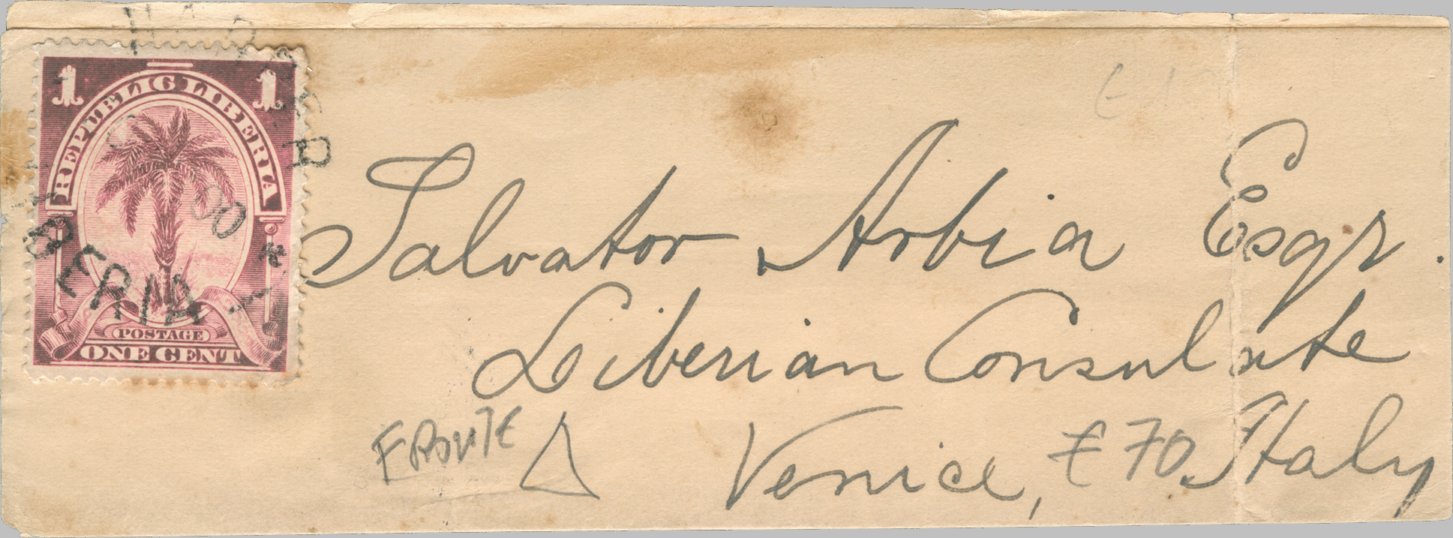 1 1
REPUBLIC LIBERIA
POSTAGE
ONE CENT
Salvator Arbia Esqr.
Liberian Consulate
Venice, Italy
€ 70
FRONTE